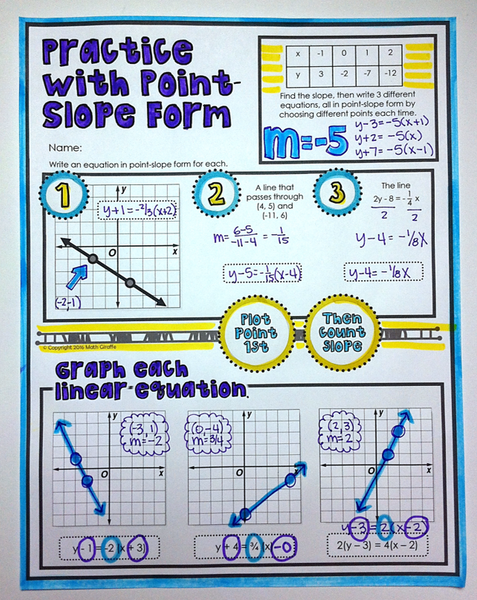 Practice
with Point-
Slope Form
Name:
Write an equation in point-slope form for each.
x -1 0 1 2
y 3 -2 -7 -12
Find the slope, then write 3 different
equations, all in point-slope form by
choosing different points each time.
m=-5
y-3=-5(x+1)
y+2=-5(x)
y+7=-5(x-1)
1
y
y+1=-2/3(x+2)
O
x
(-2,-1)
2
A line that
passes through
(4, 5) and
(-11, 6)
m= 6-5/-11-4 = 1/15
y-5=-1/15(x-4)
3
The line
2y - 8 = -1/4 x
2 2
y-4=-1/8x
y-4=-1/8x
Plot
Point
1st
Then
Count
Slope
© Copyright 2016 Math Giraffe
Graph each
linear equation.
y
(-3, 1)
m=-2
O
x
y - 1 = -2 (x + 3)
(0,-4)
m=3/4
y
O
x
y + 4 = 3/4 (x -0)
(2,3)
m=2
y
O
x
y-3=2(x-2)
2(y - 3) = 4(x - 2)